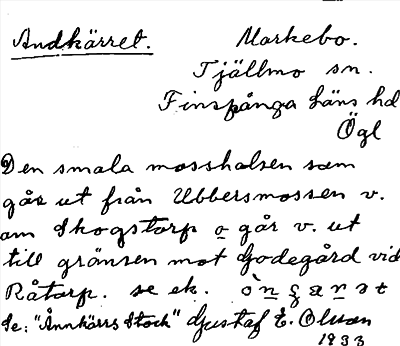 Andkärret. Markebo.
Tjällmo sn.
Finspånga läns hd
Ögl
Den smala mosshalsen som
går ut från Ubbersmossen v.
om Skogstorp o går v. ut
till gränsen mot Godegård vid
Råtorp. se ek.
Se: "Ännkärrs Stock" Gustaf E. Olsson
1933